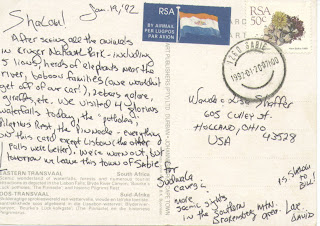 Jan. 19, '92
Shalom!
After seeing all the animals
in Kruger National Park - including
5 lions, herds of elephants near the
river, baboon families (one wouldn't
get off of our car!), zebras galore,
giraffes, etc. we visited 4 glorious
waterfalls today, the "potholes",
Pilgrims Rest, the Pinnacle - everything
on this card except Lisbon (the other
falls were better). We're worn out but
tomorrow we leave this town of Sabie
for
Sudwala
caves &
more
scenic sights
in the Southern Mtn.
Drakensberg area.
Love,
David
EASTERN TRANSVAAL
South Africa
OOS-TRANSVAAL
Suid-Afrika
RSA
BY AIRMAIL
PER LUGPOS
PAR AVION
RSA
50c
1260 SABIE
1992-01-20
Shaffer
605 Culley St.
Holland, Ohio
USA 43528
Shalom
to
Bill!